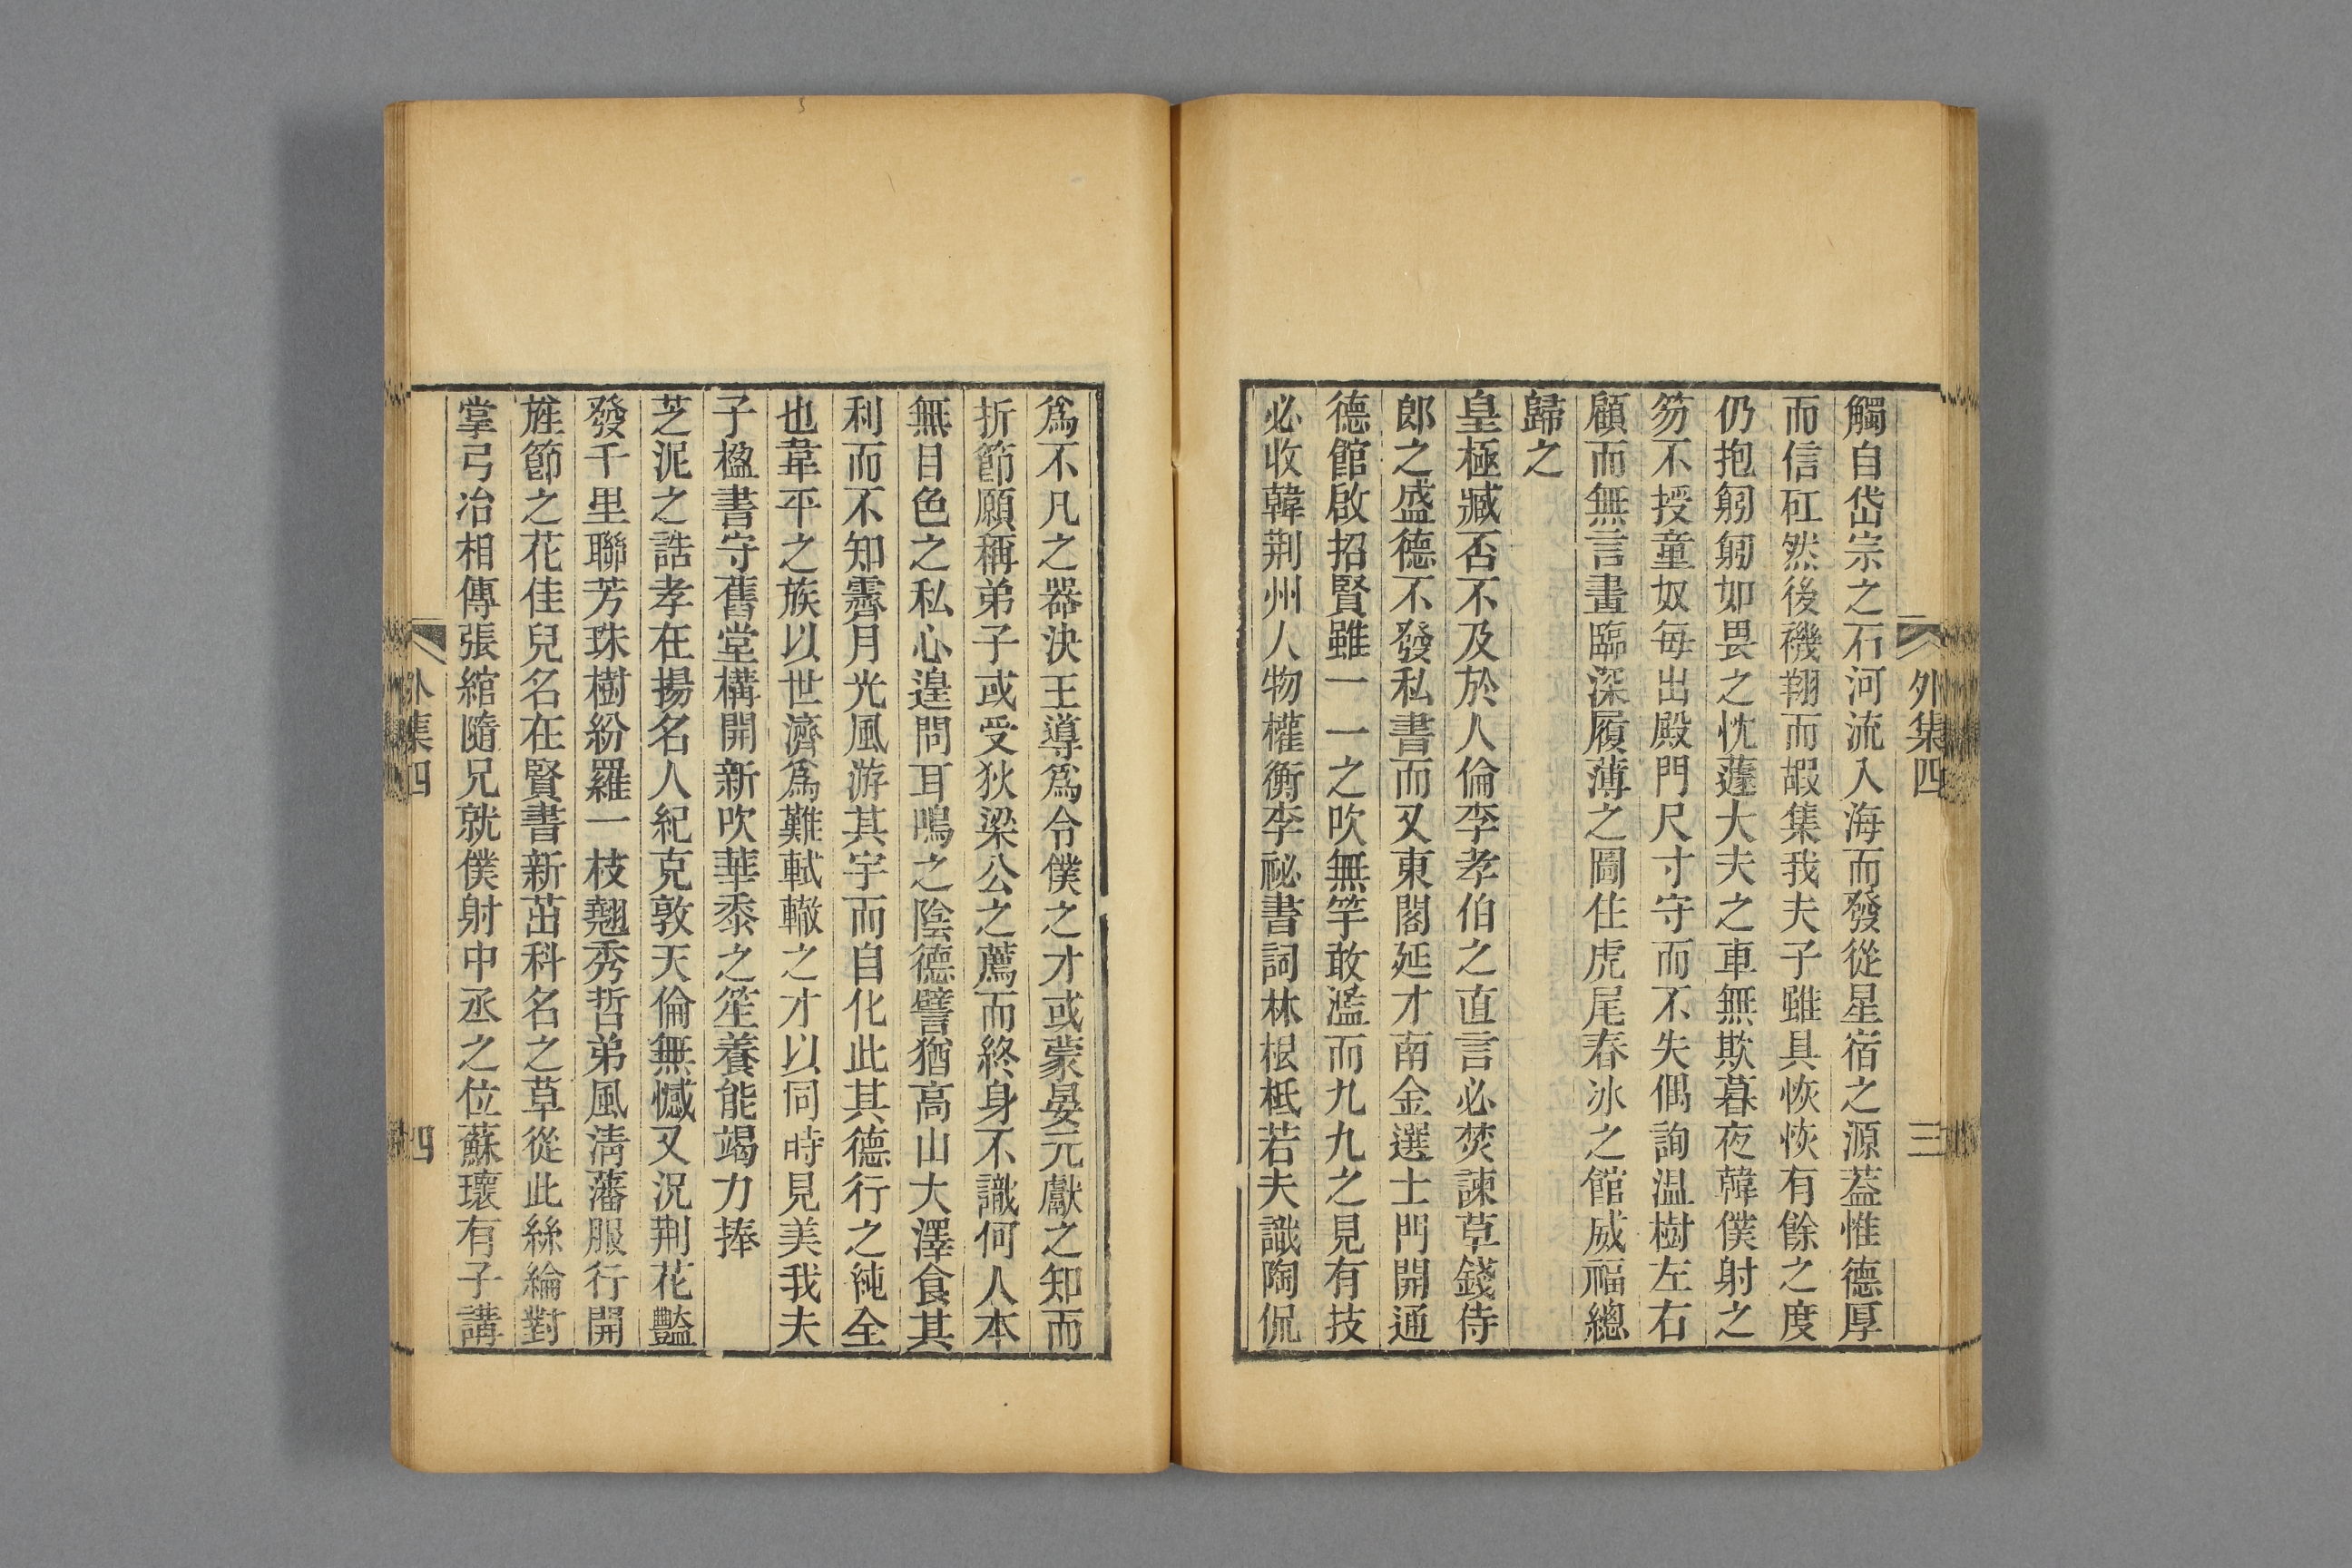 外集四
三
觸自岱宗之石河流入海而發從星宿之源葢惟德厚
而信矼然後禨翔而嘏集我夫子雖具恢恢有餘之度
仍抱躬躬如畏之忱蘧大夫之車無欺暮夜韓僕射之
笏不授童奴每出殿門尺寸守而不失偶詢温樹左右
顧而無言畫臨深履薄之圖住虎尾春冰之館威福總
歸之
皇極臧否不及於人倫李孝伯之直言必焚諫草錢侍
郎之盛德不發私書而又東閣延才南金選士門開通
德館啟招賢雖一一之吹無竽敢濫而九九之見有技
必收韓荆州人物權衡李祕書詞林根柢若夫識陶侃
爲不凡之器決王導爲令僕之才或蒙晏元獻之知而
折節願稱弟子或受狄梁公之薦而終身不識何人本
無目色之私心遑問耳鳴之陰德譬猶高山大澤食其
利而不知霽月光風游其宇而自化此其德行之純全
也韋平之族以世濟爲難軾轍之才以同時見美我夫
子楹書守舊堂構開新吹華黍之笙養能竭力捧
芝泥之誥孝在揚名人紀克敦天倫無憾又況荆花豔
發千里聯芳珠樹紛羅一枝翹秀哲弟風淸藩服行開
旌節之花佳兒名在賢書新茁科名之草從此絲綸對
掌弓冶相傳張綰隨兄就僕射中丞之位蘇瓌有子講
外集四
四